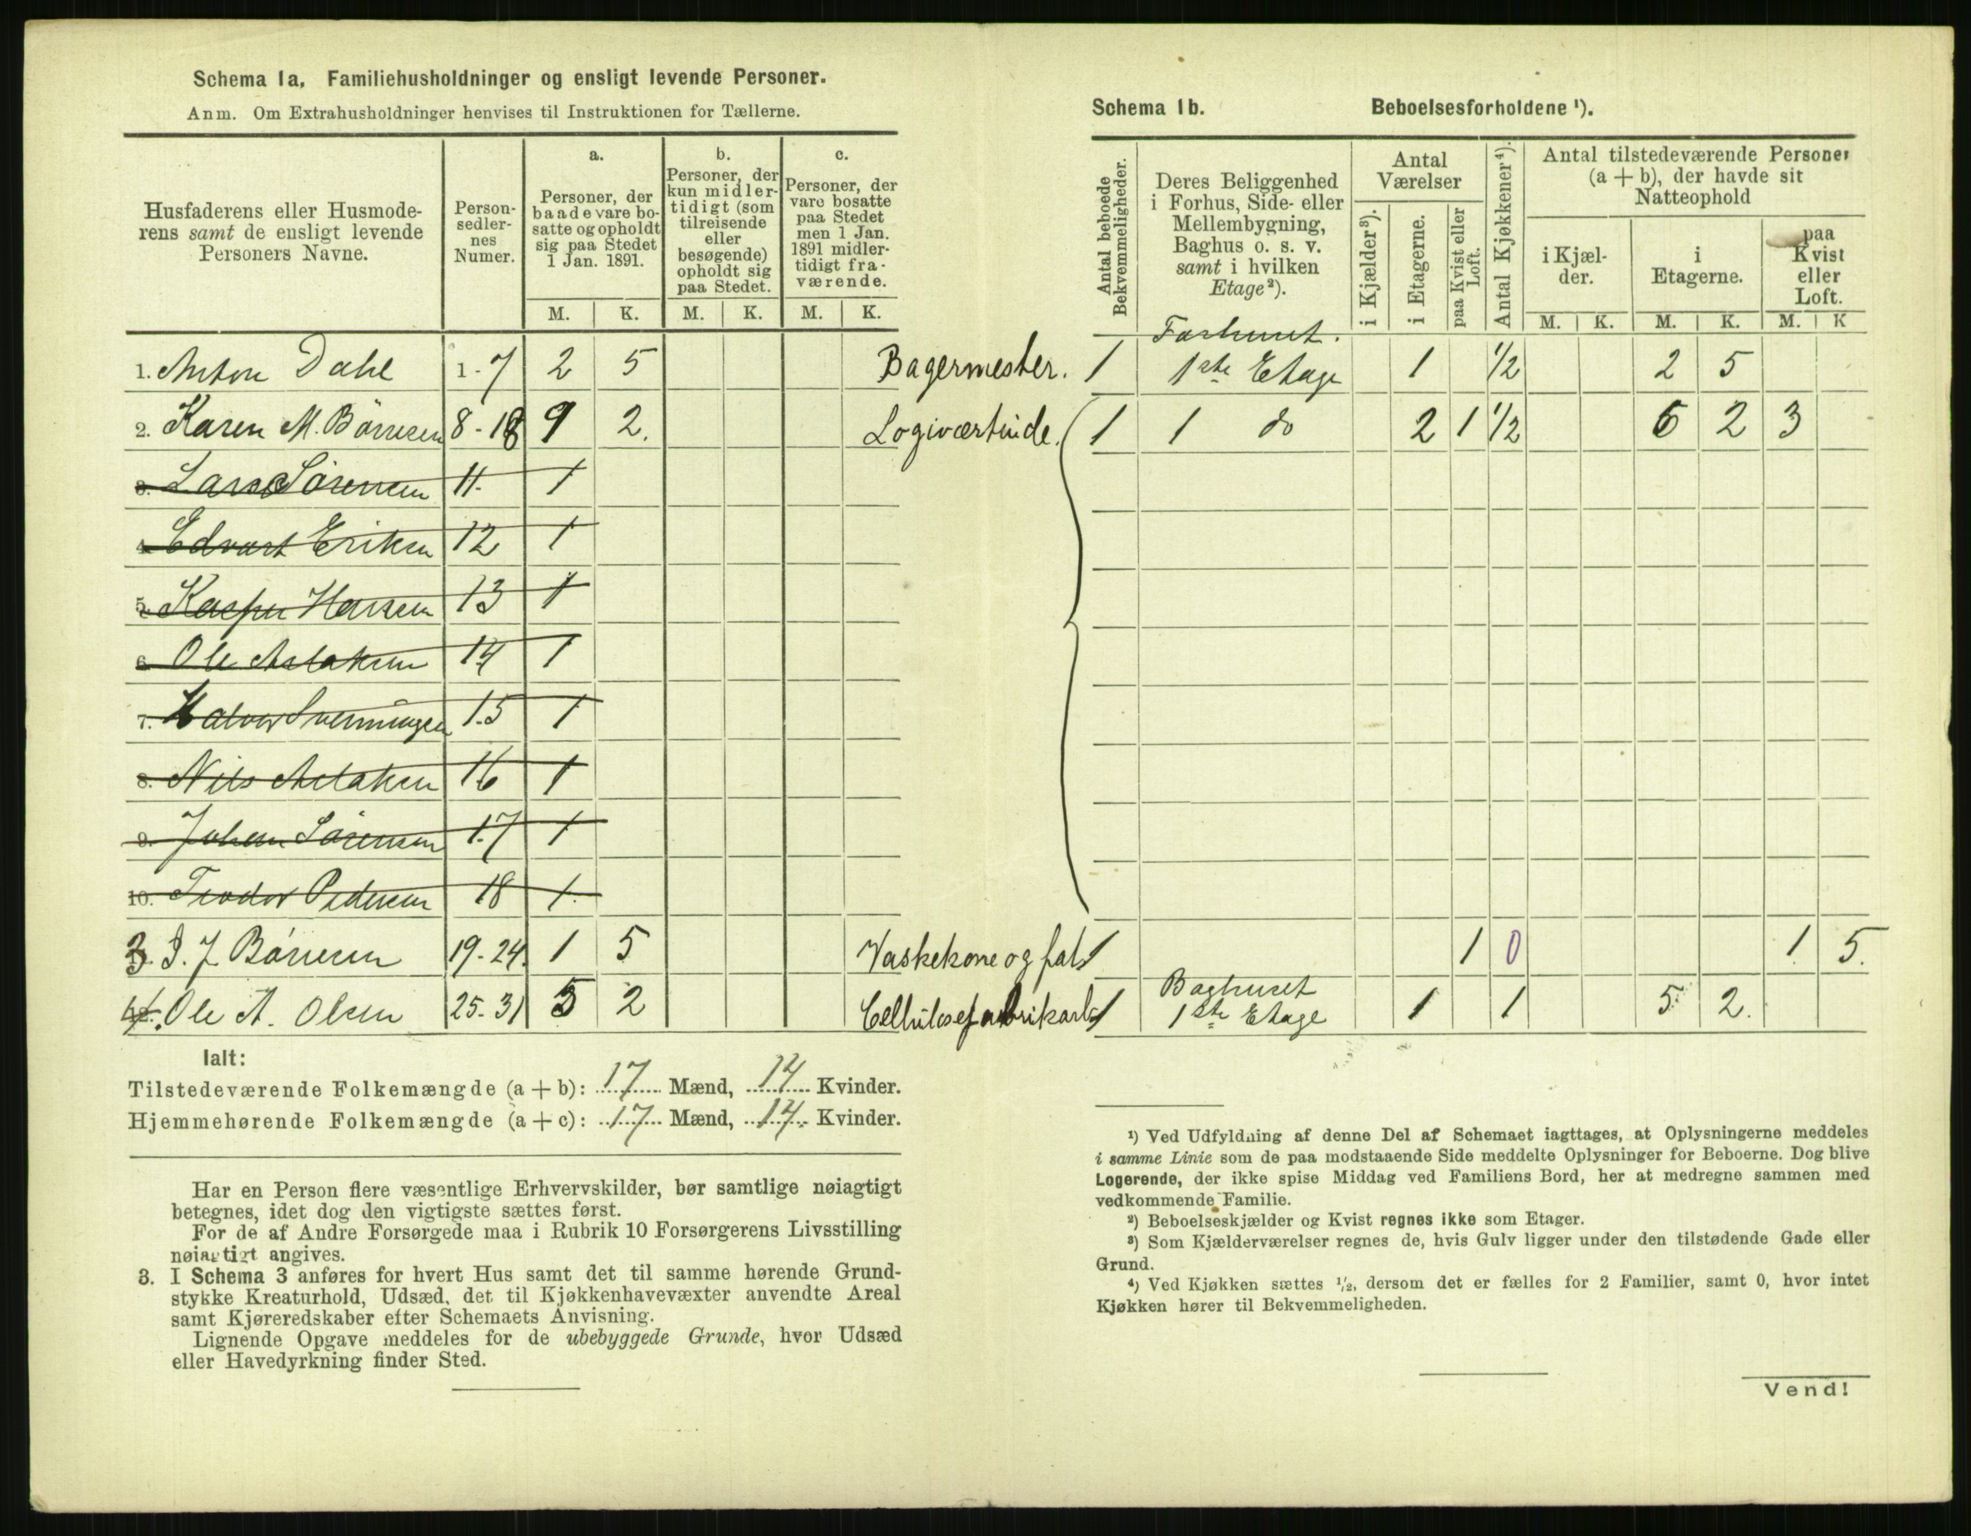 Schema 1a. Familiehusholdninger og ensligt levende Personer.
Anm. Om Extrahusholdninger henvises til Instruktionen for Tællerne.
Husfaderens eller Husmoderens samt de ensligt levende Personers Navne.
Personsedlernes Numer.
a. Personer, der baade vare bosatte og opholdt sig paa Stedet 1 Jan. 1891.
b. Personer, der kun midlertidigt (som tilreisende eller besøgende) opholdt sig paa Stedet.
c. Personer, der vare bosatte paa Stedet men 1 Jan. 1891 midlertidigt fraværende.
M. K. M. K. M. K.
1. Anton Dahl 1-7 2 5 Bagermester.
2. Karen M. Børresen 8-18 9 2. Logiværtinde.
3. Lars Sørensen 11. 1
4. Edvart Eriksen 12 1
5. Kasper Hansen 13 1
6. Ole Aslaksen 14 1
7. Halvor Svenningsen 15 1
8. Nils Aslaksen 16 1
9. Johan Sørensen 17 1
10. Teodor Pedersen 18 1.
3. J. Børresen 19-24. 1 5 Vaskekone og fat.
4. Ole A. Olsen 25-31 5 2 Cellulosefabrikarb.
Ialt:
Tilstedeværende Folkemængde (a + b): 17 Mænd, 14 Kvinder.
Hjemmehørende Folkemængde (a + c): 17 Mænd, 14. Kvinder.
Har en Person flere væsentlige Erhvervskilder, bør samtlige nøiagtigt
betegnes, idet dog den vigtigste sættes først.
For de af Andre Forsørgede maa i Rubrik 10 Forsørgerens Livsstilling
nøiagtigt angives.
3. I Schema 3 anføres for hvert Hus samt det til samme hørende Grund-
stykke Kreaturhold, Udsæd, det til Kjøkkenhavevæxter anvendte Areal
samt Kjøreredskaber efter Schemaets Anvisning.
Lignende Opgave meddeles for de ubebyggede Grunde, hvor Udsæd
eller Havedyrkning finder Sted.
Schema 1b. Beboelsesforholdene ¹).
Antal beboede Bekvemmeligheder.
Deres Beliggenhed i Forhus, Side- eller Mellembygning, Baghus o. s. v. samt i hvilken Etage²).
Antal Værelser
i Kjælder³).
i Etagerne.
paa Kvist eller Loft.
Antal Kjøkkener⁴).
Antal tilstedeværende Personer (a + b), der havde sit Natteophold
i Kjælder.
i Etagerne.
paa Kvist eller Loft.
M. K. M. K. M. K
Forhuset.
1 1ste Etage 1 1/2 2 5
1 1 do 2 1 1/2 6 2 3
1 1 0 1. 5.
Baghuset
1 1ste Etage 1 1 5 2.
¹) Ved Udfyldning af denne Del af Schemaet iagttages, at Oplysningerne meddeles
i samme Linie som de paa modstaaende Side meddelte Oplysninger for Beboerne. Dog blive
Logerende, der ikke spise Middag ved Familiens Bord, her at medregne sammen med
vedkommende Familie.
²) Beboelseskjælder og Kvist regnes ikke som Etager.
³) Som Kjælderværelser regnes de, hvis Gulv ligger under den tilstødende Gade eller
Grund.
⁴) Ved Kjøkken sættes ½, dersom det er fælles for 2 Familier, samt 0, hvor intet
Kjøkken hører til Bekvemmeligheden.
Vend!